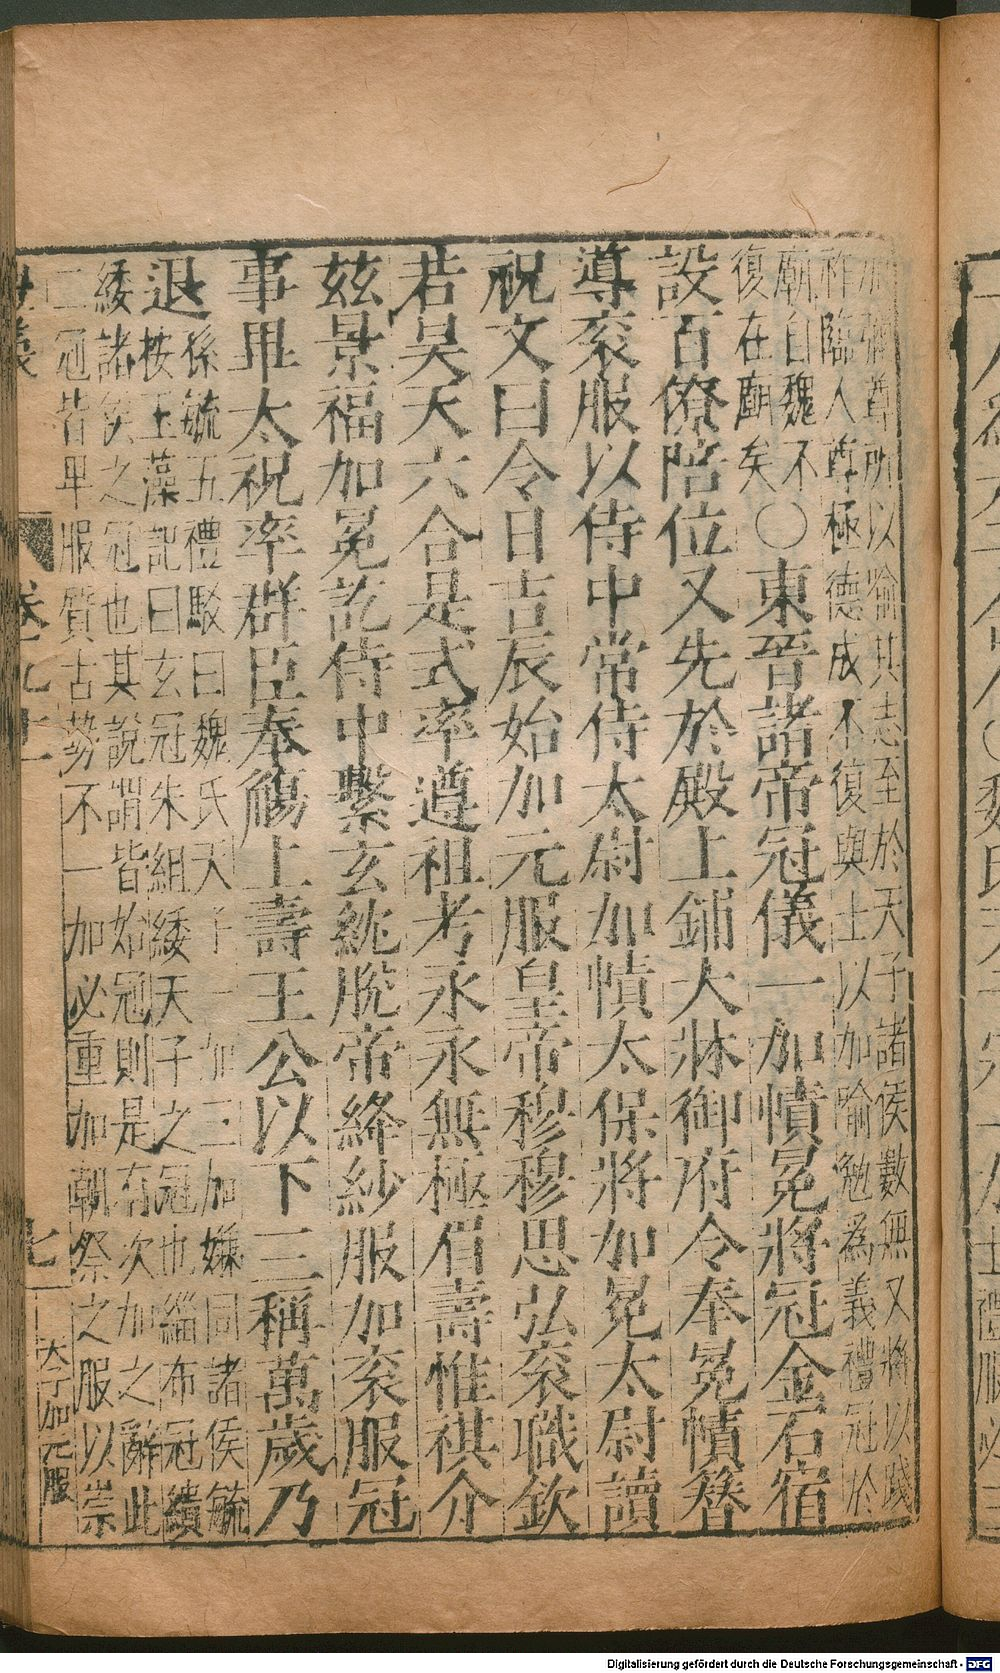 加彌尊所以喻其志至於天子諸侯數無又將以踐
祚臨人尊極德成不復與士以加喻勉爲義禮冠於
廟自魏不
復在廟矣
○東晉諸帝冠儀一加幘冕將冠金石宿
設百僚陪位又先於殿上鋪大牀御府令奉冕幘簪
導衮服以侍中常侍太尉加幘太保將加冕太尉讀
祝文曰令日吉辰始加元服皇帝穆穆思弘衮職欽
若昊天六合是式率遵祖考永永無極眉壽惟祺介
茲景福加冕訖侍中繫玄紞脫帝絳紗服加衮服冠
事畢太祝率群臣奉觴上壽王公以下三稱萬歲乃
退
孫毓五禮駮曰魏氏天子一加三加嫌同諸侯毓
按玉藻記曰玄冠朱組緌天子之冠也緇布冠繢
緌諸侯之冠也其說謂皆始冠則是有次加之辭此
二冠皆卑服質古勢不一加必重加朝祭之服以崇
七
天子加元服
Digitalisierung gefördert durch die Deutsche Forschungsgemeinschaft - DFG